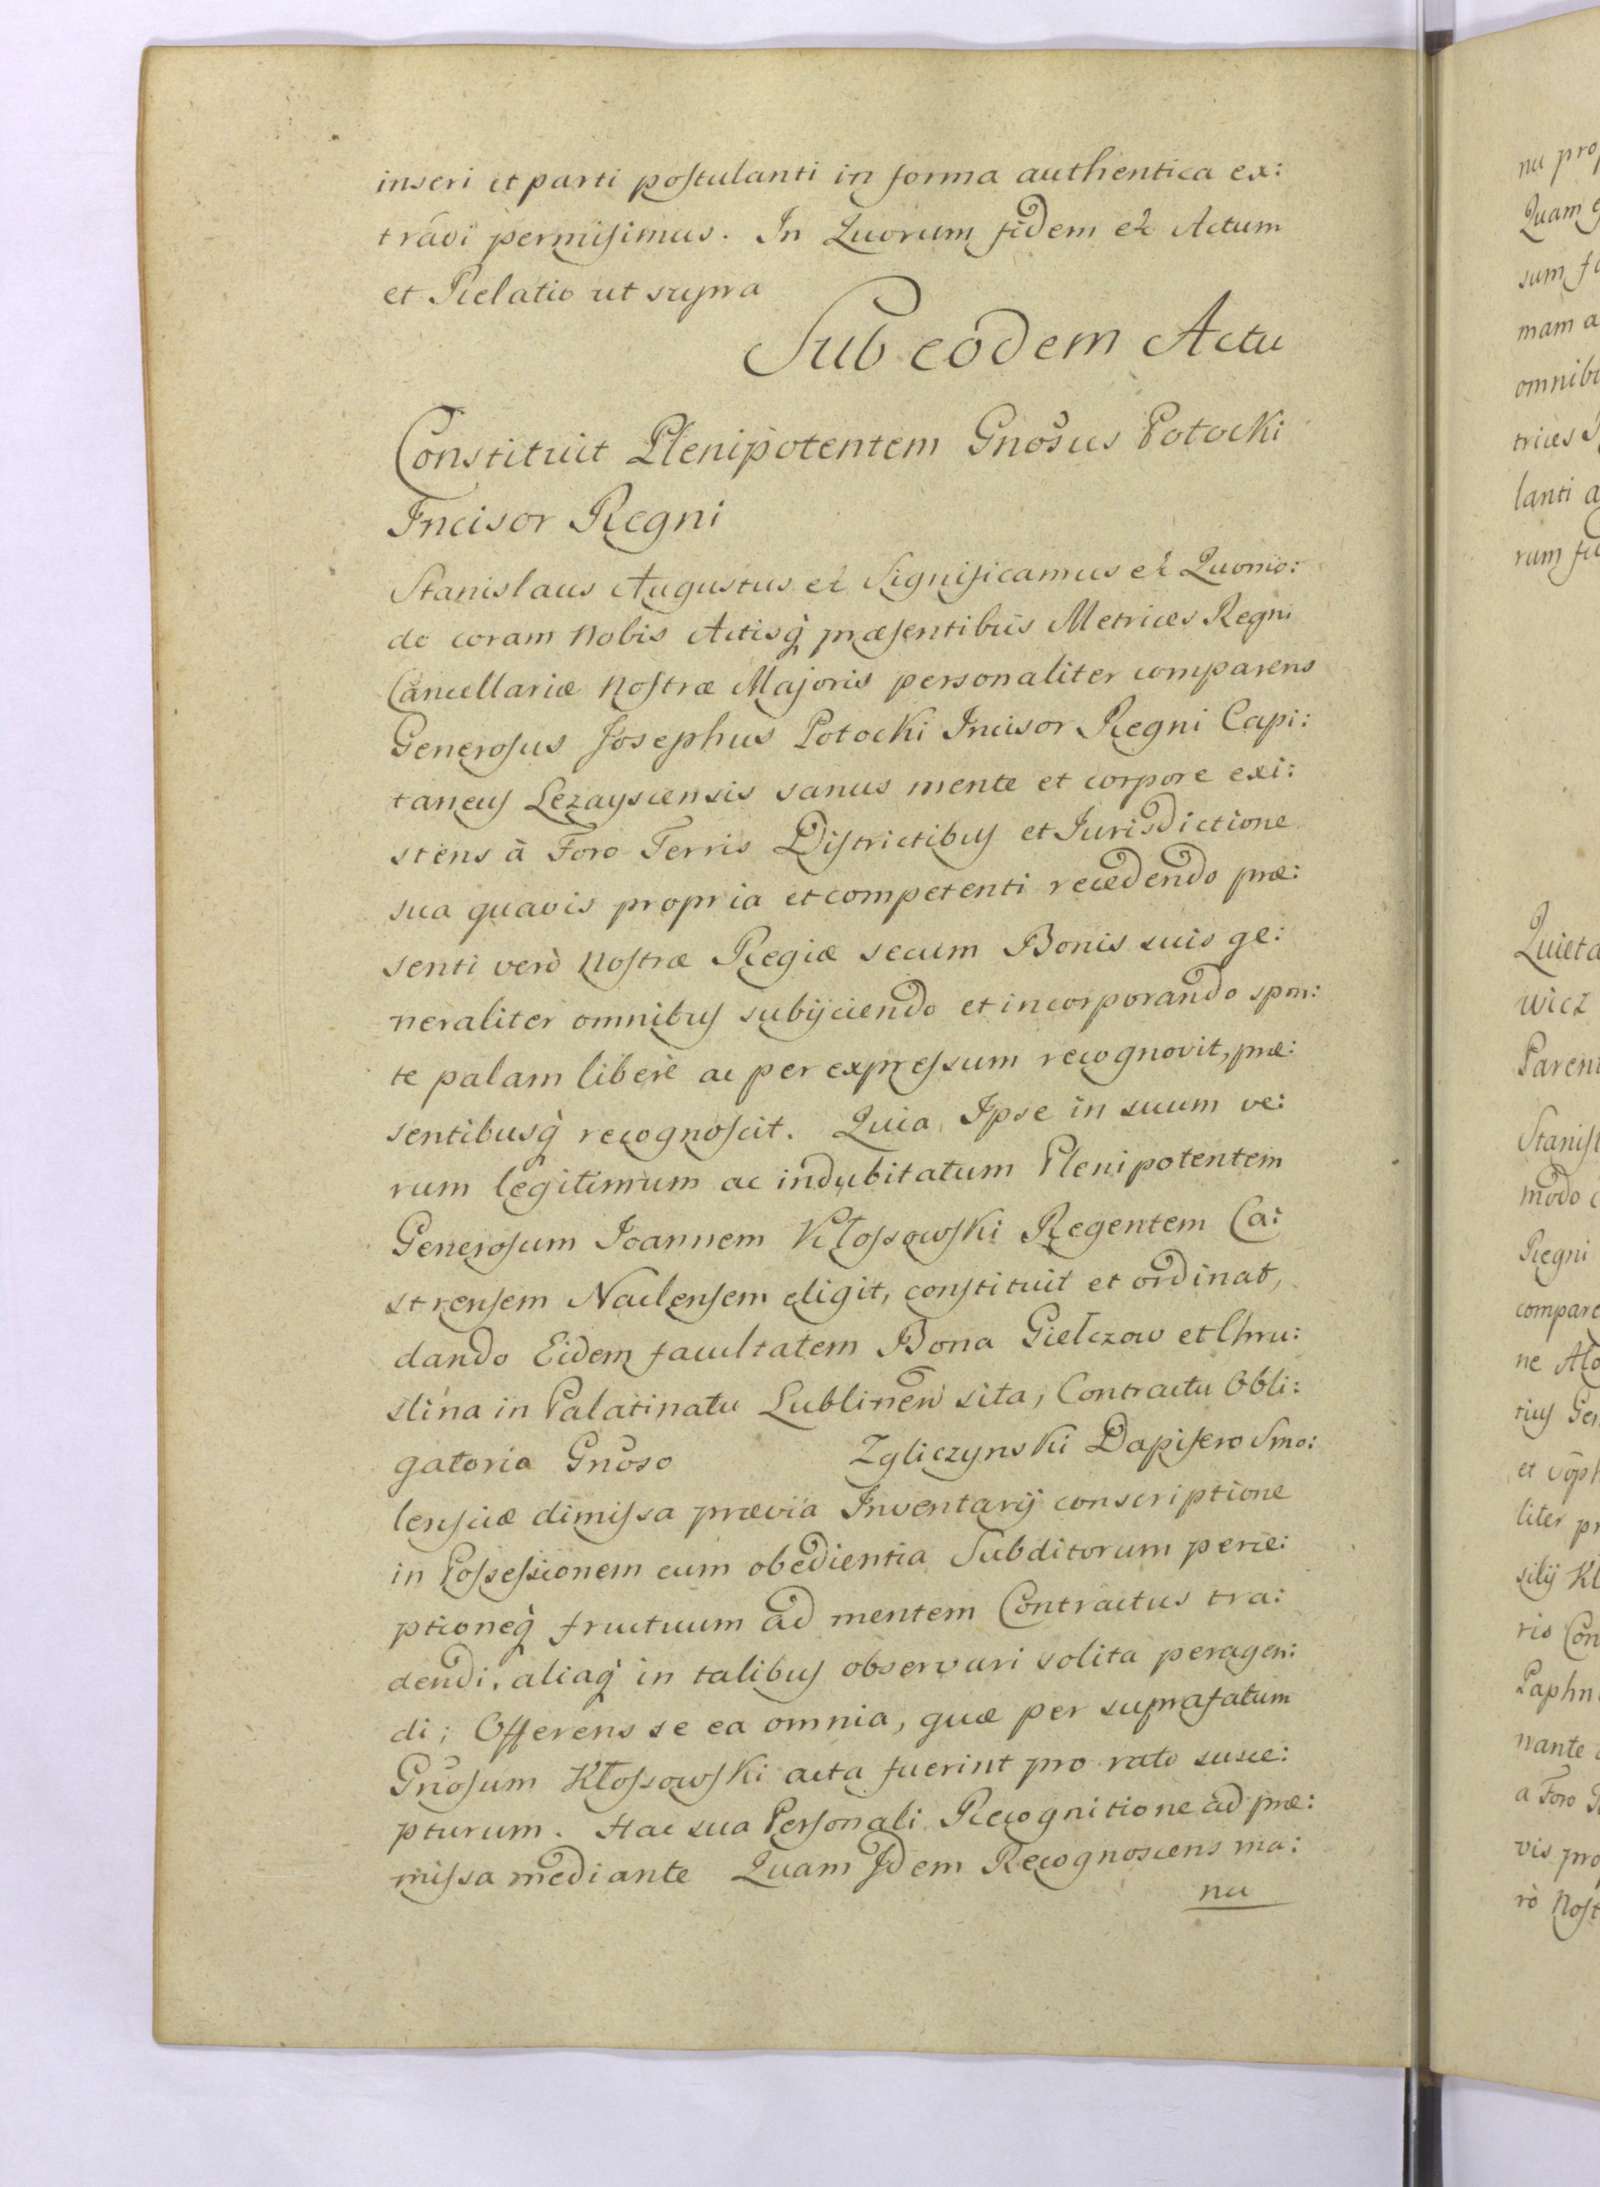 inseri et parti postulanti in forma authentica ex:
tradi permisimus. In Quorum fidem et Actum
et Relatio ut supra
Sub eodem Actu
Constituit Plenipotentem Gnosus Potocki
Incisor Regni
Stanislaus Augustus et Significamus et Quomo:
do coram Nobis Actisq; præsentibus Metrices Regni
Cancellariæ Nostræ Majoris personaliter comparens
Generosus Josephus Potocki Incisor Regni Capi:
taneus Lezayscensis sanus mente et corpore exi:
stens à Foro Terris Districtibus et Jurisdictione
sua quavis propria et competenti recedendo præ:
senti verò Nostræ Regiæ secum Bonis suis ge:
neraliter omnibus subijciendo et incorporando spon:
te palam liberè ac per expressum recognovit, præ:
sentibusq; recognoscit. Quia Ipse in suum ve:
rum legitimum ac indubitatum Plenipotentem
Generosum Joannem Kłossowski Regentem Ca:
strensem Naclensem eligit, constituit et ordinat,
dando Eidem facultatem Bona Giełczow et Chru:
ślina in Palatinatu Lublinen sita, Contractu Obli:
gatorio Gnoso Zgliczynski Dapifero Smo:
lensciæ dimissa prævia Inventarij conscriptione
in Possessionem cum obedientia Subditorum perce:
ptioneq; fructuum ad mentem Contractus tra:
dendi, aliaq; in talibus observari solita peragen:
di; Offerens se ea omnia, quæ per suprafatum
Gnosum Kłossowski acta fuerint pro rato susce:
pturum. Hac sua Personali Recognitione ad præ:
missa mediante Quam Idem Recognoscens ma:
nu
nu prop
Quam
sum
mam a
omnib
trices
lanti a
rum
Quieta
wicz
Paren
Stanisl
modo
Regni
compare
ne
tius Gen
et
liter pr
Kl
ris Con
Paphn
nante
a Foro
vis pro
rò Nost